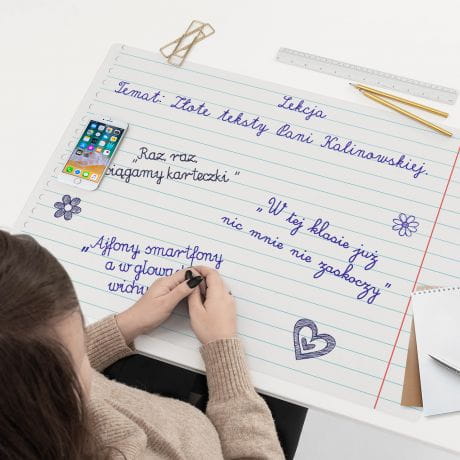 Lekcja
Temat: Złote teksty Pani Kalinowskiej.
„Raz, raz
ciągamy karteczki"
„W tej klasie już
nic mnie nie zaskoczy"
„Ajfony smartfony
a w głowach